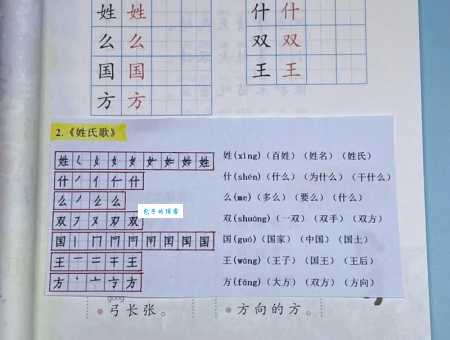 姓 姓
么 么
国 国
方 方
什 什
双 双
王 王
2.《姓氏歌》
姓
什 丿 亻 什 什
么
双 双
国 丨 冂 国
王 一 二 干 王
方 丶 亠 方 方
姓(xìng)(百姓)(姓名)(姓氏)
什(shén)(什么)(为什么)(干什么)
么(me)(多么)(要么)(什么)
双(shuāng)(一双)(双手)(双方)
国(guó)(国家)(中国)(国土)
王(wáng)(王子)(国王)(王后)
方(fāng)(大方)(双方)(方向)
gōng
弓长张。
方向的方。